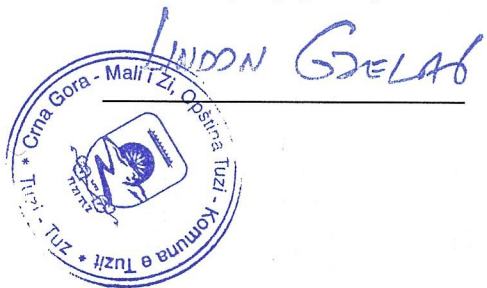 LINDON GJELAJ
Crna Gora - Mali i Zi, Opština Tuzi - Komuna e Tuzit * Tuzi - Tuz *
TUZI TUZ